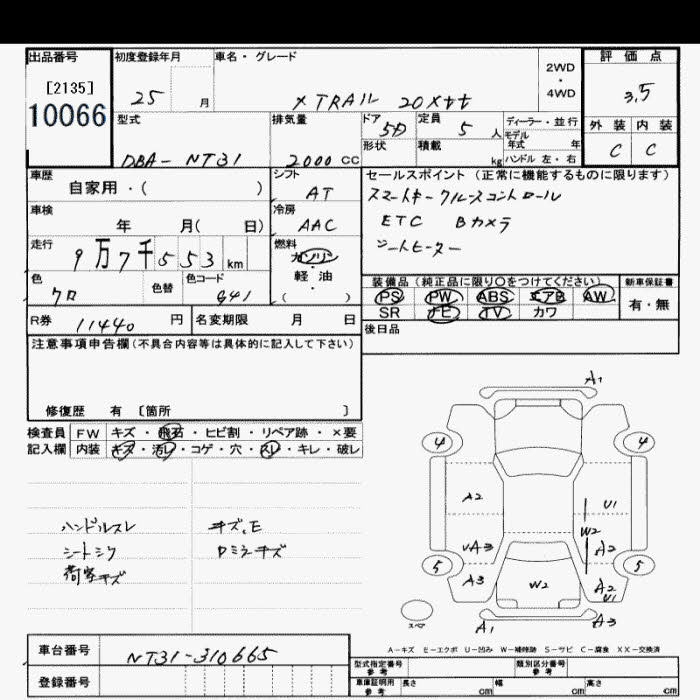 出品番号 初度登録年月 車名・グレード 評価点
[2135] 25 月 X TRAIL 20Xtt 2WD・4WD 3.5
10066
型式 排気量 ドア 5D 定員 5 人 ディーラー・並行 外装 内装
モデル年式 年
形状 積載 kg ハンドル 左・右 C C
DBA- NT31 2000 CC
車歴 シフト セールスポイント(正常に機能するものに限ります)
自家用・( ) AT スマートキー クルーズコントロール
車検 冷房 ETC Bカメラ
年 月( 日) AAC シートヒーター
走行 燃料
9万7千553km ガソリン・軽・油( )
色 色替 色コード 装備品(純正品に限り○をつけてください) 新車保証書
クロ G41 PS PW ABS エアB AW 有・無
R券 11440 円 名変期限 月 日 SR ナビ TV カワ
注意事項申告欄(不具合内容等は具体的に記入して下さい) 後日品
修復歴 有 [箇所 ]
検査員 FW キズ・飛石・ヒビ割・リペア跡・×要
記入欄 内装 キズ・汚レ・コゲ・穴・スレ・キレ・破レ
ハンドルスレ キズ、E
シートシワ ロミラーキズ
荷室キズ
A1
4 4
A2 U1
W2
UA3 A2
5 5
A3 W2 A2
U1
スペア A1 A3
A-キズ E-エクボ U-凹み W-補修跡 S-サビ C-腐食 XX-交換済
車台番号 NT31-310665
登録番号
型式指定番号 参考 類別区分番号 参考
車庫証明用 参考 長さ cm 幅 cm 高さ cm